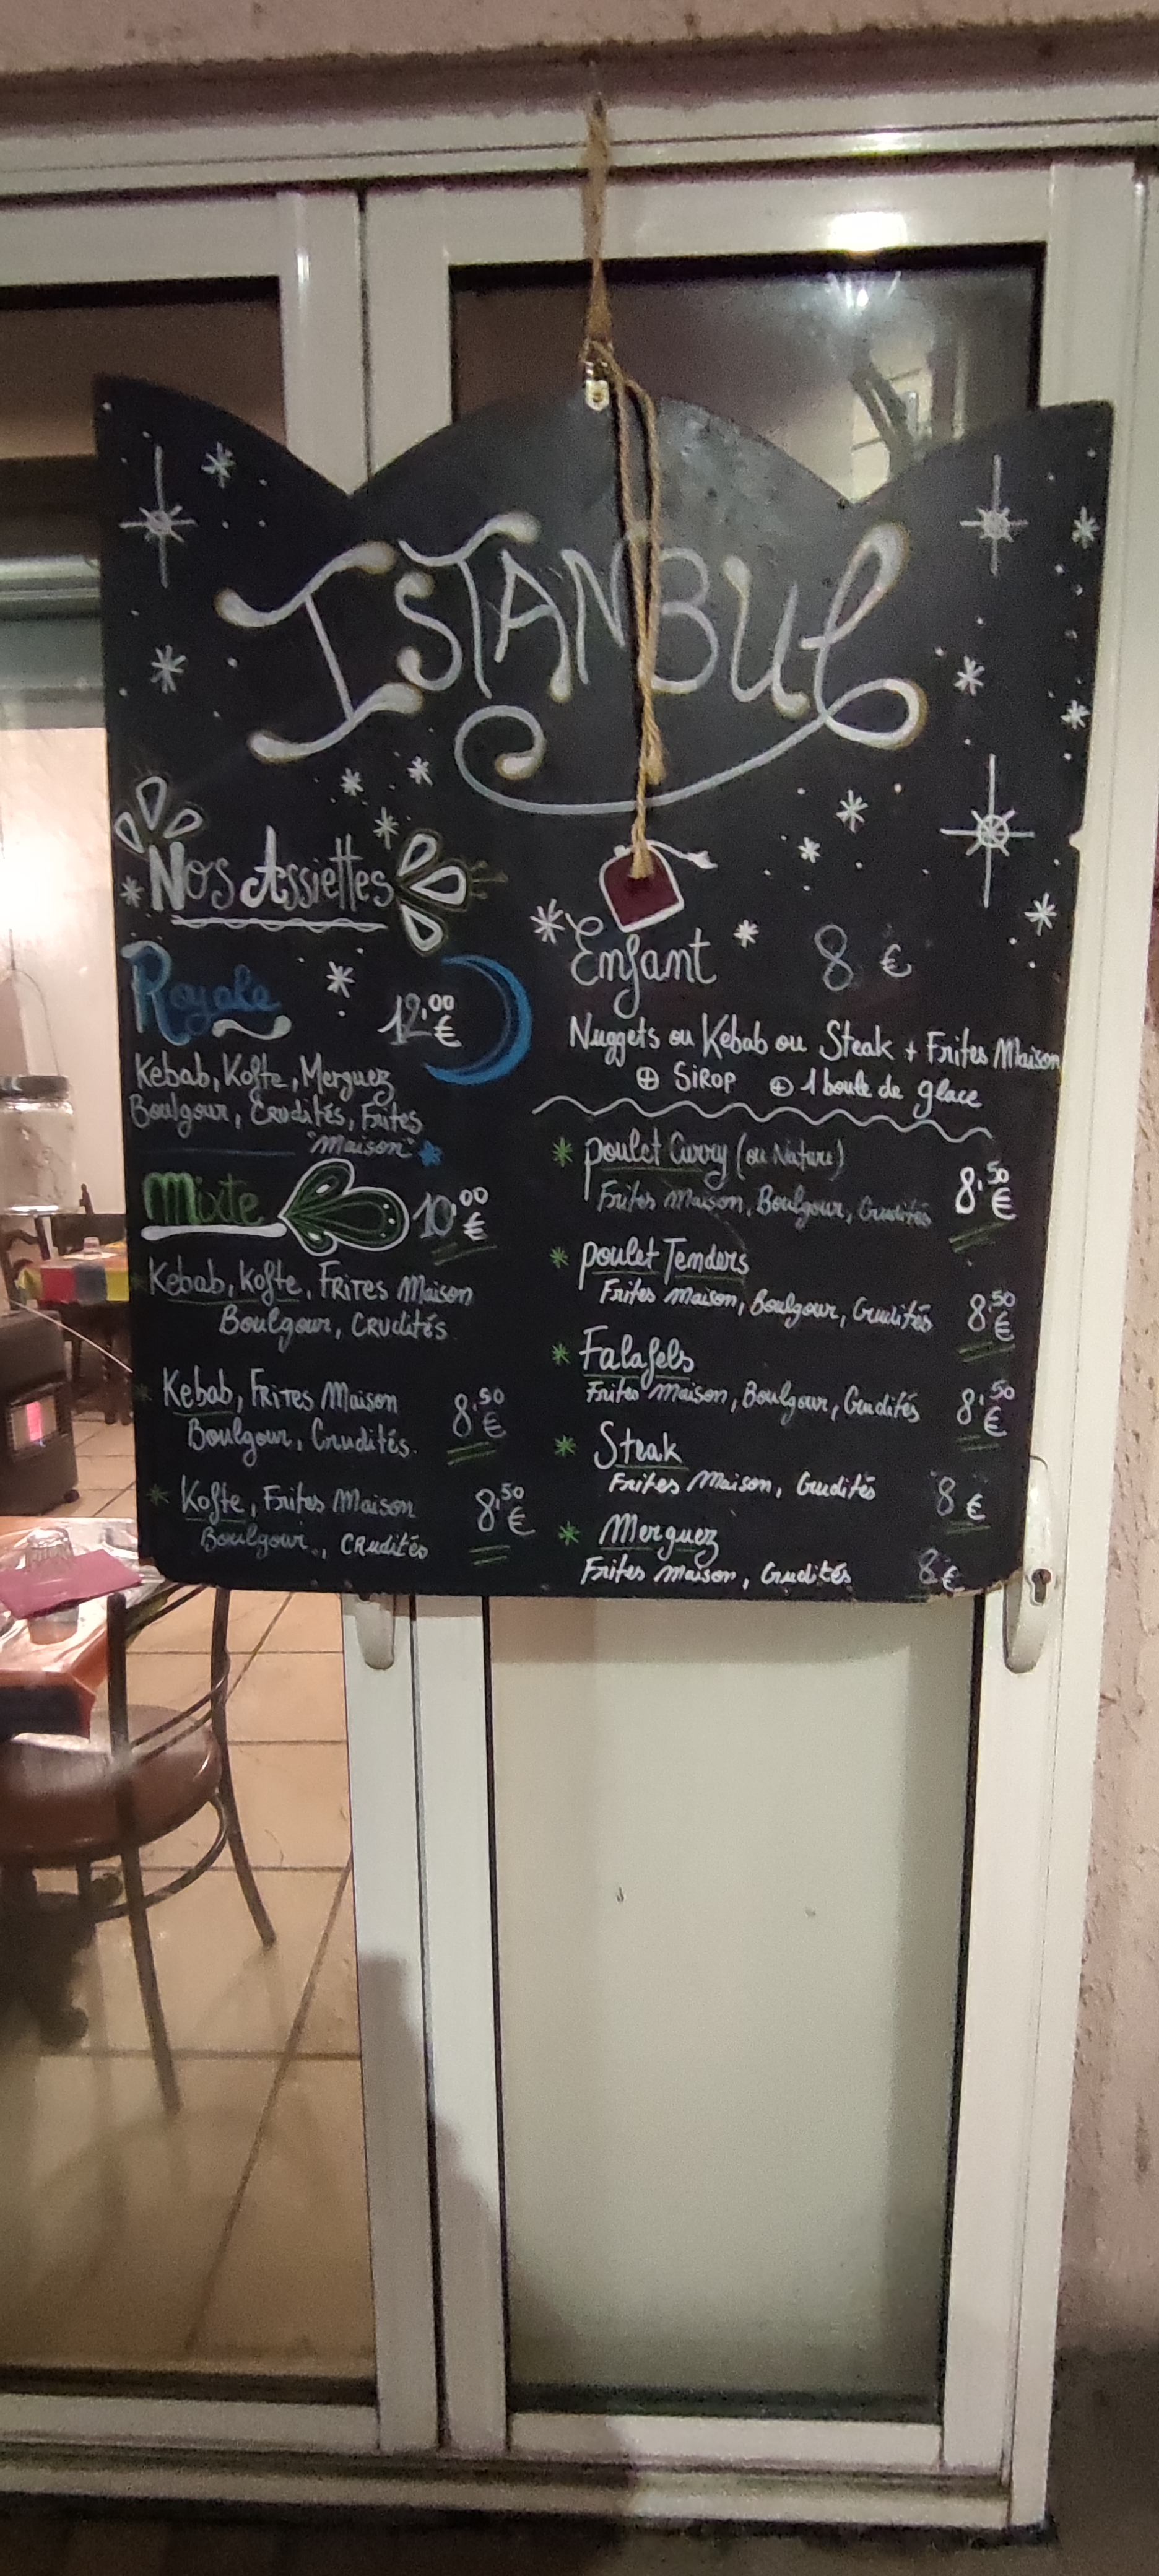 ISTANBUL
Nos Assiettes
Royale
12,00 €
Kebab, Kofte, Merguez
Boulgour, Crudités, Frites
"Maison"
Mixte
10,00 €
Kebab, Kofte, Frites Maison
Boulgour, Crudités
Kebab, Frites Maison
8,50 €
Boulgour, Crudités.
Kofte, Frites Maison
8,50 €
Boulgour, Crudités
Enfant 8 €
Nuggets ou Kebab ou Steak + Frites Maison
⊕ Sirop ⊕ 1 boule de glace
poulet Curry (ou Nature)
8,50 €
Frites Maison, Boulgour, Crudités
poulet Tenders
Frites Maison, Boulgour, Crudités 8,50 €
Falafels
Frites Maison, Boulgour, Crudités 8,50 €
Steak
Frites Maison, Crudités 8 €
Merguez
Frites Maison, Crudités 8 €